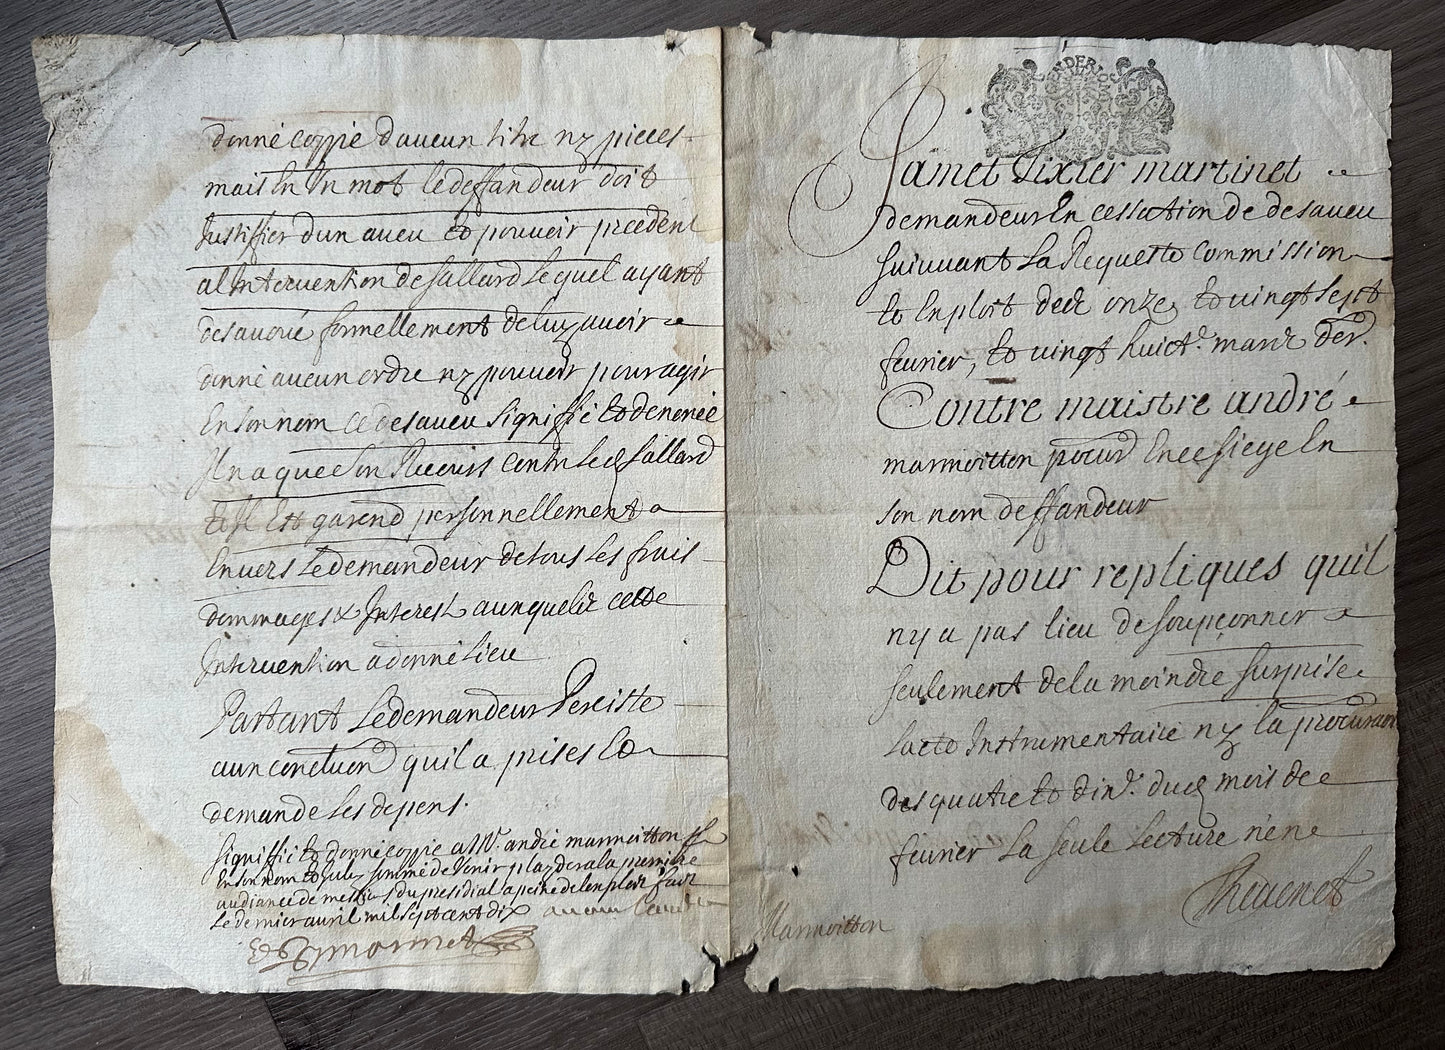 donné coppie daucun titre ny pieces
mais En Un mot ledeffandeur doit
Justiffier dun aveu et pouvoir precedent
al Intervention de fallard lequel ayant
desavoüé formellement deluy avoir
donné aucun ordre ny pouvoir pour agir
En son nom ce desaveu signiffié et denoncé
Il na que son Recours contre led fallard
et Il Est garend personnellement
Envers Ledemandeur de tous les frais
dommages & Interest auxquelz cette
Intervention a donné lieu
Partant Ledemandeur Persiste
aux conclusions quil a prises Et
demande les depens.
signiffié et donné coppie a Me. andré marmoitton
En son nom sommé de Venir playder a la premiere
audiance de messieurs du presidial a peine de lexploit fait
Le dernier avril mil sept cent dix
GENDERIOM
Jamet Tixier martinet
demandeur En cessation de desaveu
suivant La Requeste Commission
et Exploit des onze, et vingt sept
fevrier, et vingt huict. mars der.
Contre maistre andré
marmoitton procur En ce siege En
son nom deffandeur
Dit pour repliques quil
ny a pas lieu de soupçonner
seulement dela moindre surprise
Lacte Instrumentaire ny la procuration
des quatre et dix. dud mois de
fevrier La seule Lecture nen
Thevenet
Marmoitton